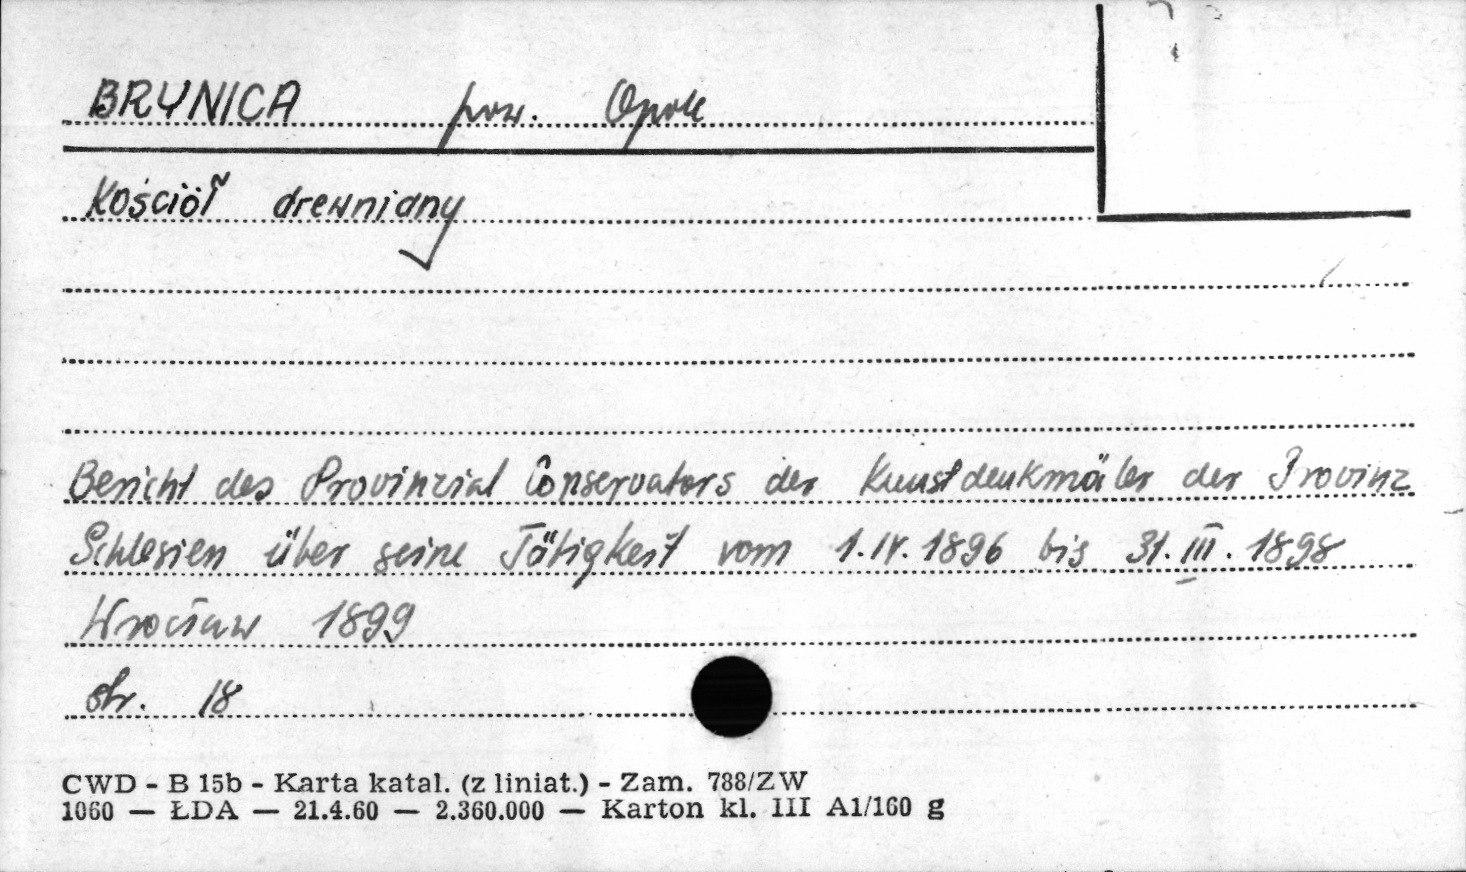 BRYNICA pow. Opole
Kościół drewniany
Bericht des Provinzial Conservators der Kunstdenkmäler der Provinz
Schlesien über seine Tätigkeit vom 1.IV.1896 bis 31.III.1898
Wrocław 1899
str. 18
CWD - B 15b - Karta katal. (z liniat.) - Zam. 788/ZW
1060 — ŁDA — 21.4.60 — 2.360.000 — Karton kl. III A1/160 g